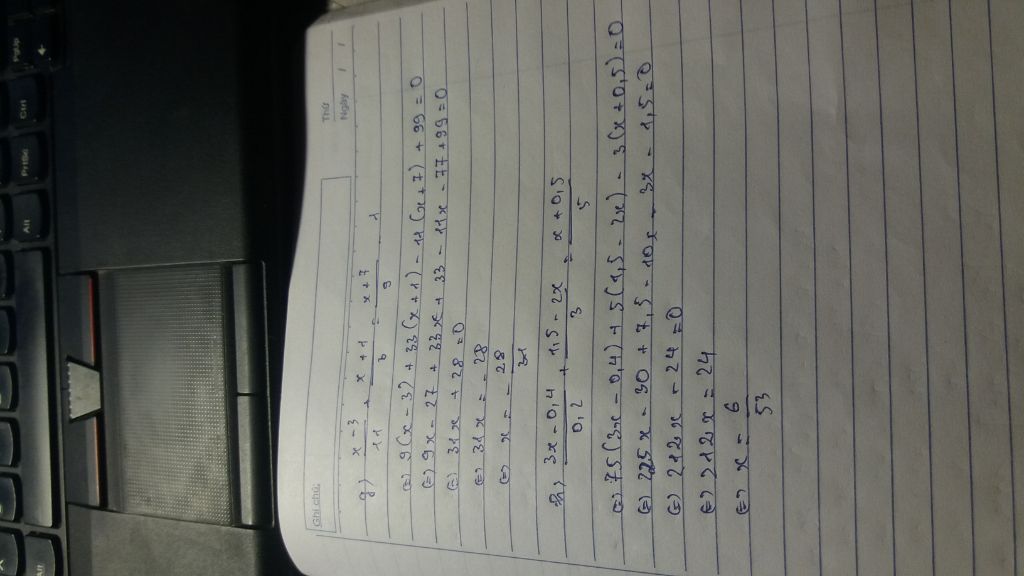 Ghi chú:
Thứ
Ngày / /
g) x - 3 / 11 + x + 1 / 3 = x + 7 / 9 - 1
(=) 9(x - 3) + 33(x + 1) - 11(x + 7) + 99 = 0
(=) 9x - 27 + 33x + 33 - 11x - 77 + 99 = 0
(=) 31x + 28 = 0
(=) 31x = - 28
(=) x = - 28 / 31
h) 3x - 0,4 / 0,2 + 1,5 - 2x / 3 = x + 0,5 / 5
(=) 75(3x - 0,4) + 5(1,5 - 2x) - 3(x + 0,5) = 0
(=) 225x - 30 + 7,5 - 10x - 3x - 1,5 = 0
(=) 212x - 24 = 0
(=) 212x = 24
(=) x = 6 / 53
PgUp
Ctrl
PrtSc
Alt
Alt